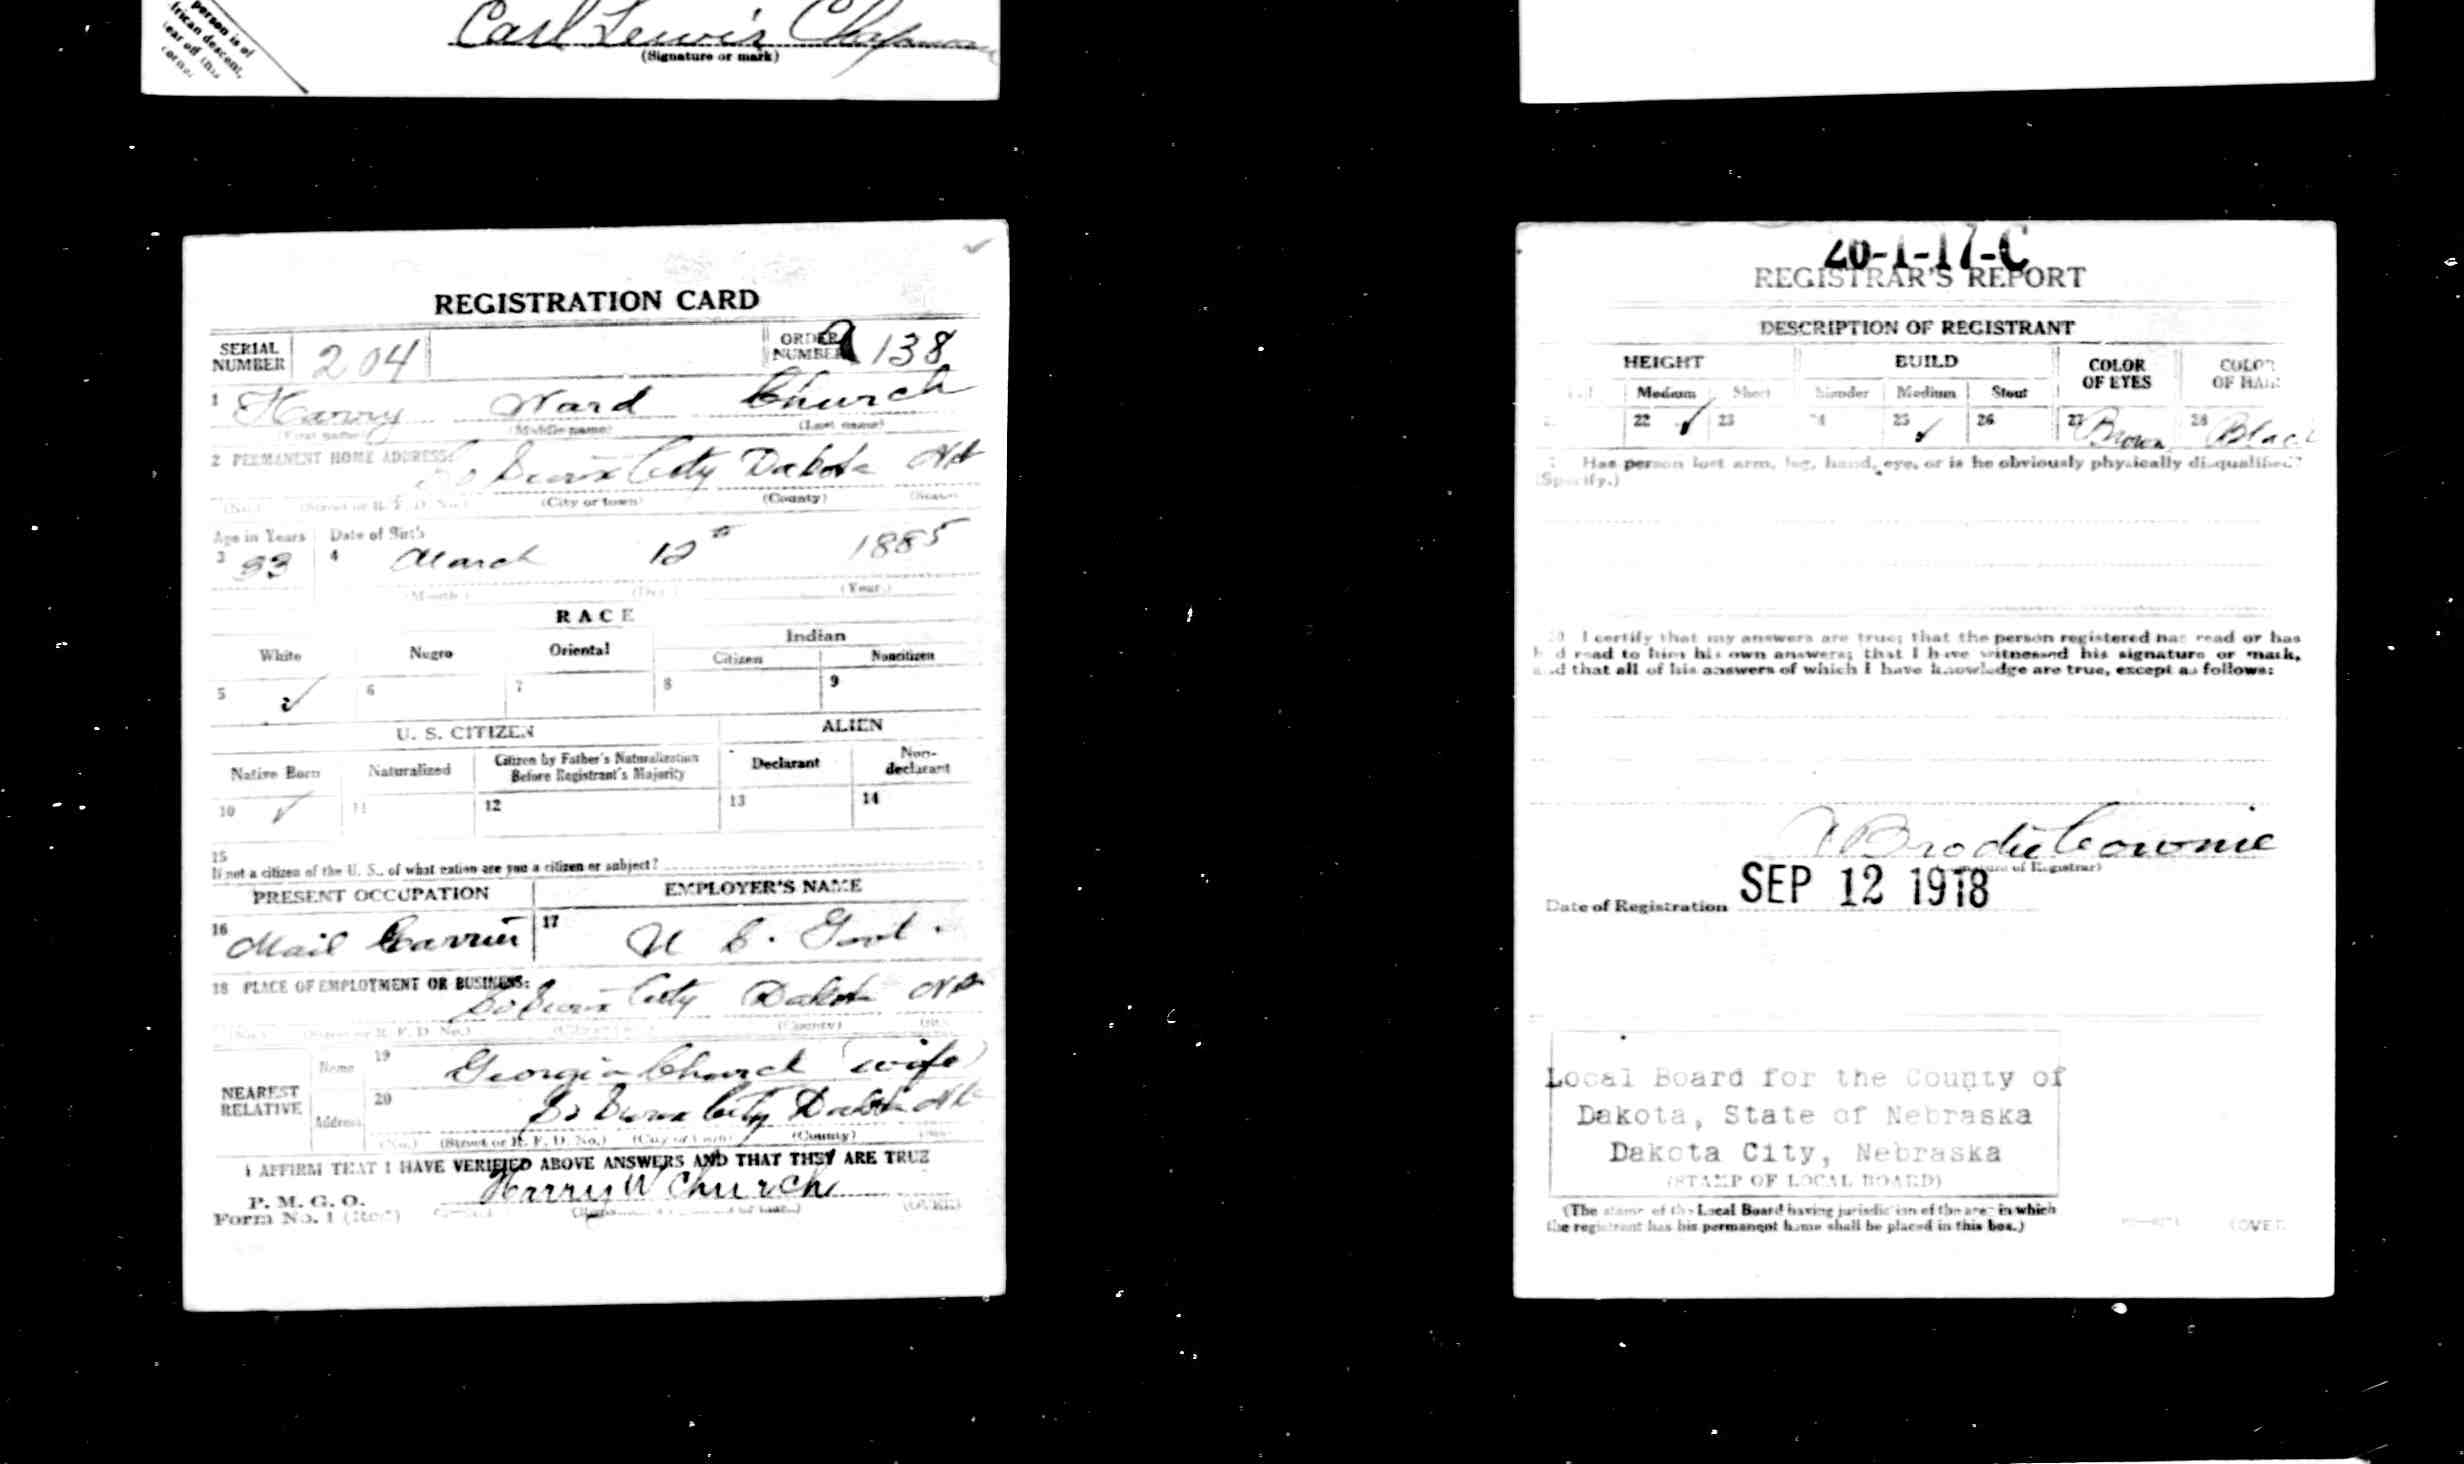 person is of
frican descent,
ear off this
corner.
Carl Lewis Chapman
(Signature or mark)
REGISTRATION CARD
SERIAL NUMBER 204 ORDER NUMBER A 138
1 Harry Ward Church
(First name) (Middle name) (Last name)
2 PERMANENT HOME ADDRESS:
So Sioux City Dakota Neb
(No.) (Street or R. F. D. No.) (City or town) (County) (State)
Age in Years Date of Birth
3 33 4 March 12th 1885
(Month.) (Day.) (Year.)
RACE
White Negro Oriental Indian
Citizen Noncitizen
5 ✓ 6 7 8 9
U. S. CITIZEN ALIEN
Native Born Naturalized Citizen by Father's Naturalization Before Registrant's Majority Declarant Non-declarant
10 ✓ 11 12 13 14
15
If not a citizen of the U. S., of what nation are you a citizen or subject?
PRESENT OCCUPATION EMPLOYER'S NAME
16 Mail Carrier 17 U S. Govt.
18 PLACE OF EMPLOYMENT OR BUSINESS:
So Sioux City Dakota Neb
(No.) (Street or R. F. D. No.) (County)
NEAREST RELATIVE
Name 19 Georgia Church (wife)
Address 20 So Sioux City Dakota Neb
(No.) (Street or R. F. D. No.) (City or town) (County)
I AFFIRM THAT I HAVE VERIFIED ABOVE ANSWERS AND THAT THEY ARE TRUE
P. M. G. O.
Form No. 1 (Red)
Harry W Church
(OVER)
20-1-17-C
REGISTRAR'S REPORT
DESCRIPTION OF REGISTRANT
HEIGHT BUILD COLOR OF EYES COLOR OF HAIR
Medium Short Slender Medium Stout
22 ✓ 23 24 25 ✓ 26 27 Brown 28 Black
Has person lost arm, leg, hand, eye, or is he obviously physically disqualified?
(Specify.)
30 I certify that my answers are true; that the person registered has read or has
had read to him his own answers; that I have witnessed his signature or mark,
and that all of his answers of which I have knowledge are true, except as follows:
Brodie Cownie
(Signature of Registrar)
Date of Registration SEP 12 1918
Local Board for the County of
Dakota, State of Nebraska
Dakota City, Nebraska
(STAMP OF LOCAL BOARD)
(The stamp of the Local Board having jurisdiction of the area in which
the registrant has his permanent home shall be placed in this box.)
(OVER